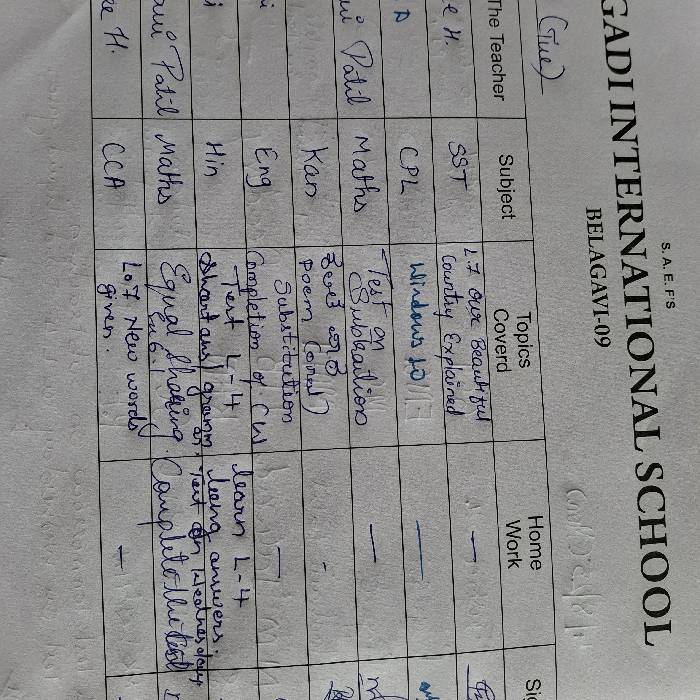 S. A. E. F'S
GADI INTERNATIONAL SCHOOL
BELAGAVI-09
(Tue)
The Teacher Subject Topics Coverd Home Work Sig
e H. SST L7 Our Beautiful Country Explained —
A CPL Windows 10 —
ui Patil Maths Test on Subtraction —
Kan Poem (oral) -
i Eng Substitution Completion of CW —
i Hin Test L-4 Shortans/gramm learn L-4 long answers. Test on Wednesday
aui Patil Maths Equal sharing. Complete the test
ee H. CCA L.7 New words given. —